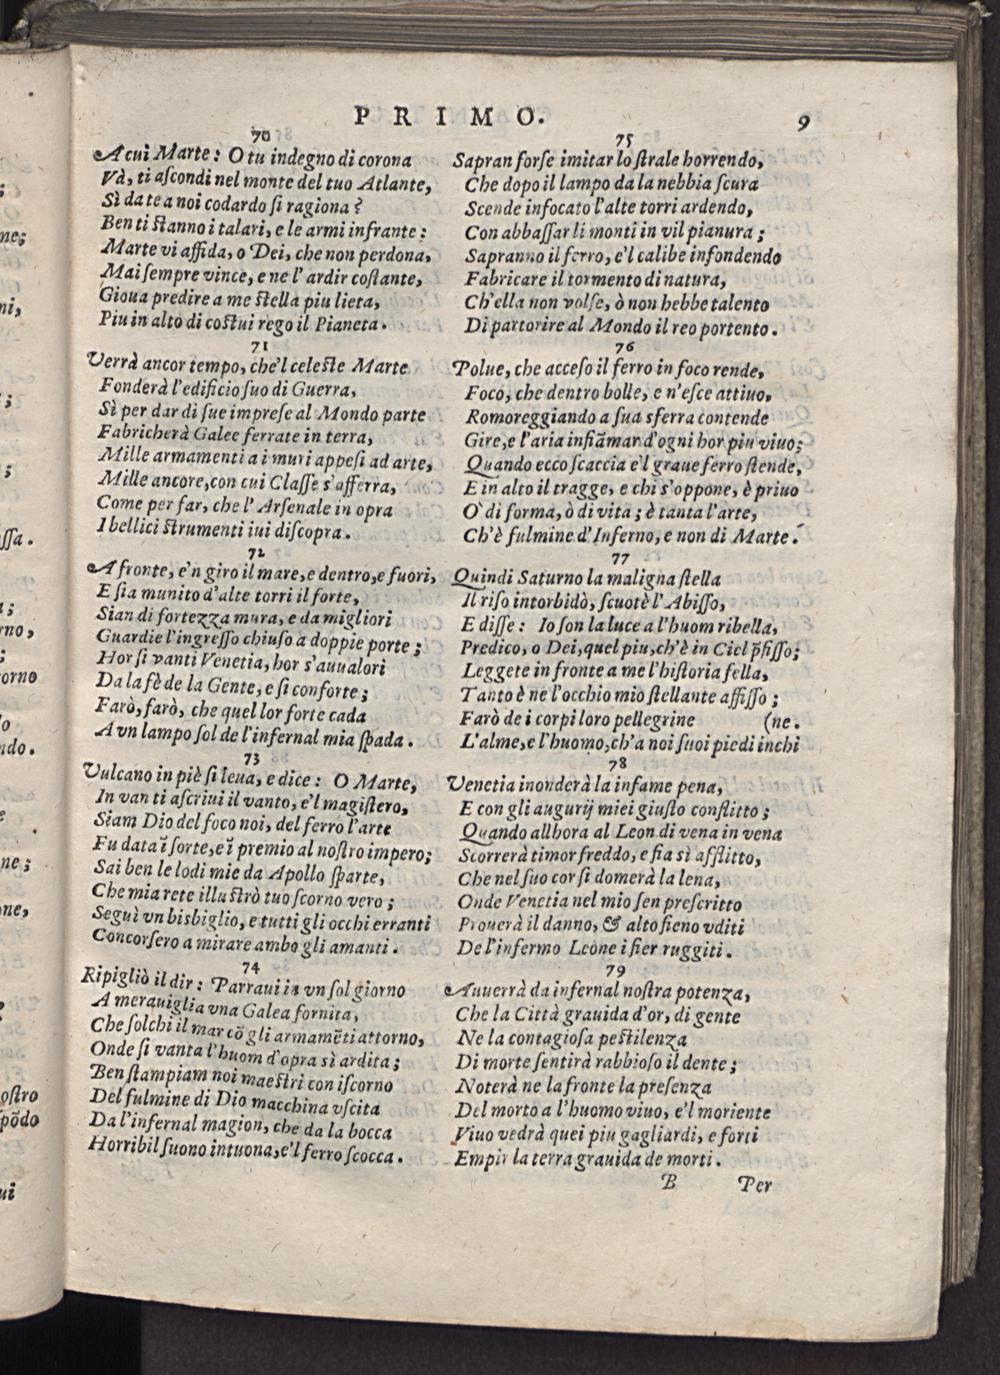 PRIMO. 9
70
A cui Marte: O tu indegno di corona
Và, ti aſcondi nel monte del tuo Atlante,
Sì da te a noi codardo ſi ragiona?
Ben ti ſtanno i talari, e le armi infrante:
Marte vi affida, o Dei, che non perdona,
Mai ſempre vince, e ne l'ardir coſtante,
Gioua predire a me ſtella piu lieta,
Piu in alto di coſtui rego il Pianeta.
71
Verrà ancor tempo, che'l celeſte Marte
Fonderà l'edificio ſuo di Guerra,
Sì per dar di ſue impreſe al Mondo parte
Fabricherà Galee ferrate in terra,
Mille armamenti a i muri appeſi ad arte,
Mille ancore, con cui Claſſe s'afferra,
Come per far, che l'Arſenale in opra
I bellici ſtrumenti iui diſcopra.
72
A fronte, e'n giro il mare, e dentro, e fuori,
E ſia munito d'alte torri il forte,
Sian di fortezza mura, e da migliori
Guardie l'ingreſſo chiuſo a doppie porte;
Hor ſi vanti Venetia, hor s'auualori
Da la fè de la Gente, e ſi conforte;
Farò, farò, che quel lor forte cada
A vn lampo ſol de l'infernal mia ſpada.
73
Vulcano in piè ſi leua, e dice: O Marte,
In van ti aſcriui il vanto, e'l magiſtero,
Siam Dio del foco noi, del ferro l'arte
Fu data ĩ ſorte, e ĩ premio al noſtro impero;
Sai ben le lodi mie da Apollo ſparte,
Che mia rete illuſtrò tuo ſcorno vero;
Seguì vn bisbiglio, e tutti gli occhi erranti
Concorſero a mirare ambo gli amanti.
74
Ripigliò il dir: Parraui in vn ſol giorno
A merauiglia vna Galea fornita,
Che ſolchi il mar cõ gli armamẽti attorno,
Onde ſi vanta l'huom d'opra sì ardita;
Ben ſtampiam noi maeſtri con iſcorno
Del fulmine di Dio macchina vſcita
Da l'infernal magion, che da la bocca
Horribil ſuono intuona, e'l ferro ſcocca.
75
Sapran forſe imitar lo ſtrale horrendo,
Che dopo il lampo da la nebbia ſcura
Scende infocato l'alte torri ardendo,
Con abbaſſar li monti in vil pianura;
Sapranno il ferro, e'l calibe infondendo
Fabricare il tormento di natura,
Ch'ella non volſe, ò non hebbe talento
Di partorire al Mondo il reo portento.
76
Polue, che acceſo il ferro in foco rende,
Foco, che dentro bolle, e n'eſce attiuo,
Romoreggiando a ſua sferra contende
Gire, e l'aria infiãmar d'ogni hor piu viuo;
Quando ecco ſcaccia e'l graue ferro ſtende,
E in alto il tragge, e chi s'oppone, è priuo
O' di forma, ò di vita; è tanta l'arte,
Ch'è fulmine d'Inferno, e non di Marte.
77
Quindi Saturno la maligna ſtella
Il riſo intorbidò, ſcuotè l'Abiſſo,
E diſſe: Io ſon la luce a l'huom ribella,
Predico, o Dei, quel piu, ch'è in Ciel p̃fiſſo;
Leggete in fronte a me l'hiſtoria fella,
Tanto è ne l'occhio mio ſtellante affiſſo;
Farò de i corpi loro pellegrine (ne.
L'alme, e l'huomo, ch'a noi ſuoi piedi inchi
78
Venetia inonderà la infame pena,
E con gli augurij miei giuſto conflitto;
Quando allhora al Leon di vena in vena
Scorrerà timor freddo, e fia sì afflitto,
Che nel ſuo cor ſi domerà la lena,
Onde Venetia nel mio ſen preſcritto
Prouerà il danno, & alto fieno vditi
De l'infermo Leone i fier ruggiti.
79
Auuerrà da infernal noſtra potenza,
Che la Città grauida d'or, di gente
Ne la contagioſa peſtilenza
Di morte ſentirà rabbioſo il dente;
Noterà ne la fronte la preſenza
Del morto a l'huomo viuo, e'l moriente
Viuo vedrà quei piu gagliardi, e forti
Empir la terra grauida de morti.
B Per